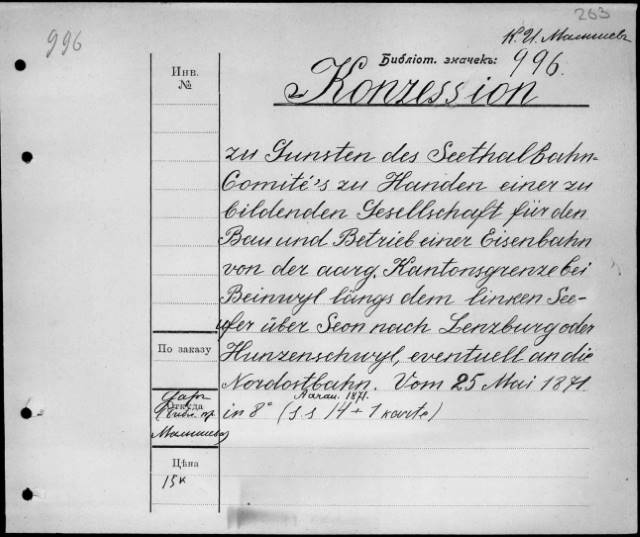 263
996
К. И. Малышевъ
Библіот. значекъ:
996.
Инв.
№
Konzession
zu Gunsten des Seethalbahn-
Comité's zu Handen einer zu
bildenden Gesellschaft für den
Bau und Betrieb einer Eisenbahn
von der aarg. Kantonsgrenze bei
Beinwyl längs dem linken See-
ufer über Seon nach Lenzburg oder
По заказу
Hunzenschwyl, eventuell an die
Nordostbahn. Vom 25 Mai 1871.
Aarau. 1871.
Откуда
in 8° (s.s 14 + 1 karte)
Малышева
Цѣна
15к